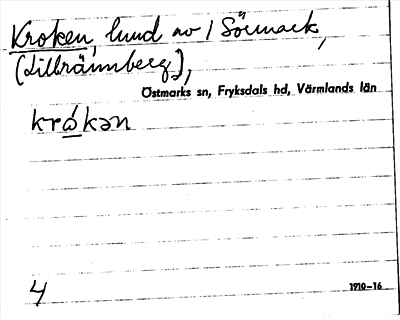 Kroken, lund av 1 Sörmark,
(Lillrämmberg),
Östmarks sn, Fryksdals hd, Värmlands län
krókən
4
1910-16